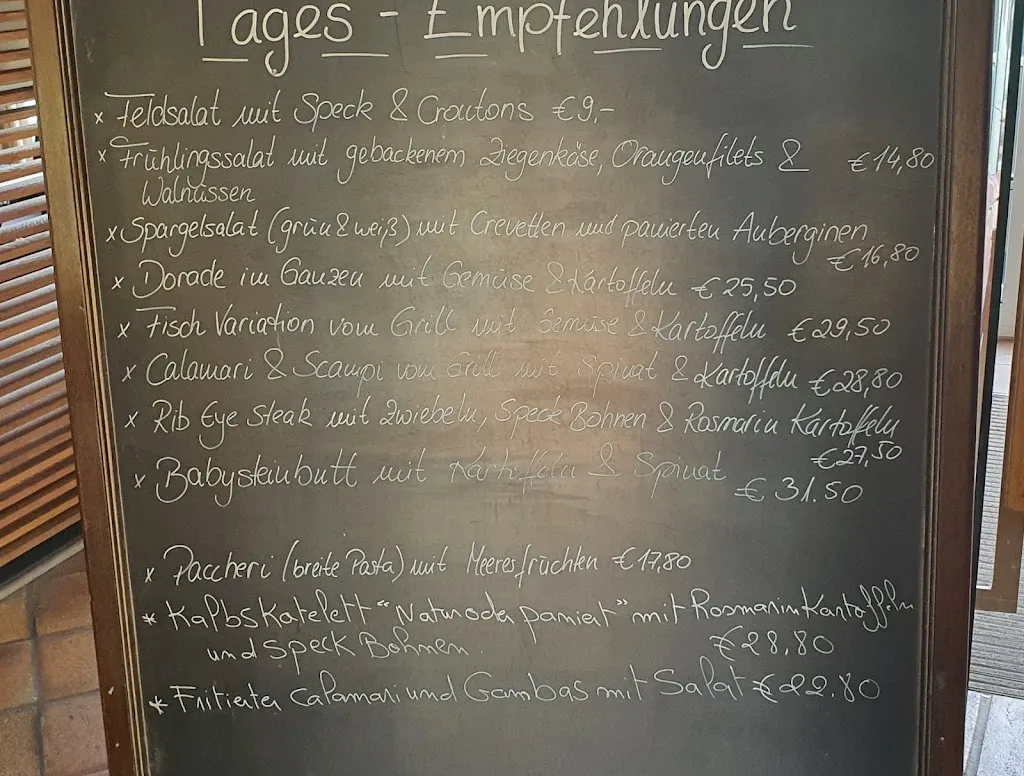 Tages - Empfehlungen
x Feldsalat mit Speck & Croutons €9,-
x Frühlingssalat mit gebackenem Ziegenkäse, Orangenfilets & €14,80
Walnüssen
x Spargelsalat (grün & weiß) mit Crevetten und panierten Auberginen
€16,80
x Dorade im Ganzen mit Gemüse & Kartoffeln €25,50
x Fisch Variation vom Grill mit Gemüse & Kartoffeln €29,50
x Calamari & Scampi vom Grill mit Spinat & Kartoffeln €28,80
x Rib Eye Steak mit Zwiebeln, Speck Bohnen & Rosmarin Kartoffeln
€27,50
x Babysteinbutt mit Kartoffeln & Spinat
€31.50
x Paccheri (breite Pasta) mit Meeresfrüchten €17,80
* Kalbskatelett "Natur oder paniert" mit Rosmarin Kartoffeln
und Speck Bohnen. €28,80
* Fritierter Calamari und Gambas mit Salat €22.80